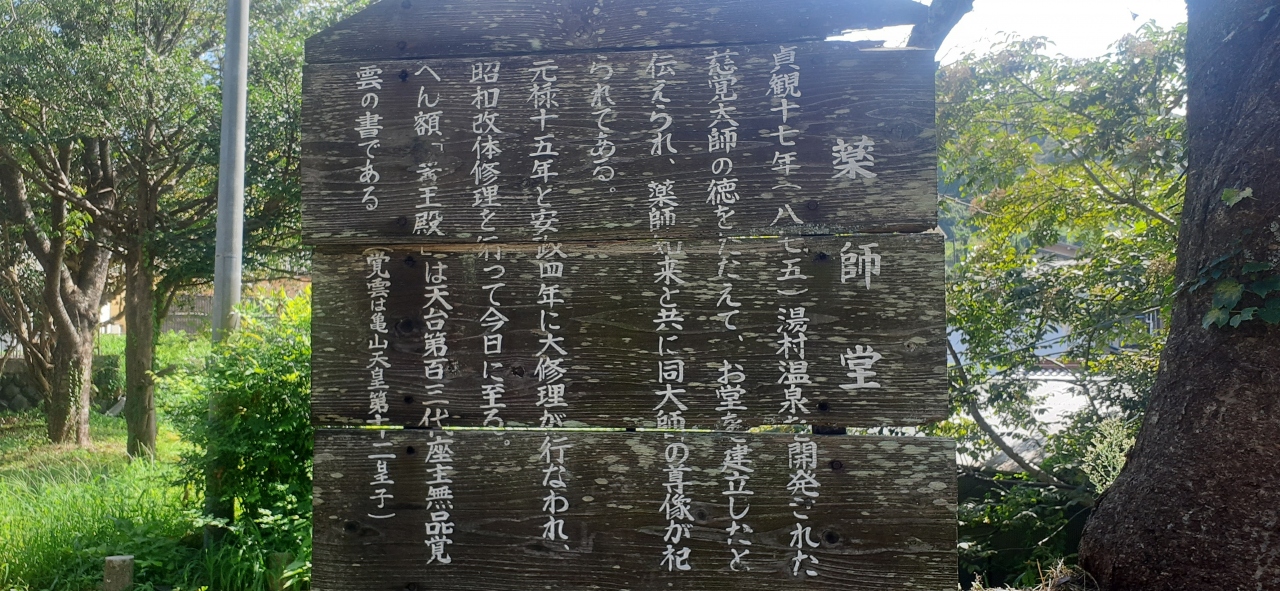 薬師堂
貞観十七年(八七五)湯村温泉を開発された
慈覚大師の徳をたたえて、お堂を建立したと
伝えられ、薬師如来と共に同大師の尊像が祀
られてある。
元禄十五年と安政四年に大修理が行なわれ、
昭和改体修理を行って今日に至る。
へん額「医王殿」は天台第百三代座主無品覚
雲の書である
(覚雲は亀山天皇第十二皇子)